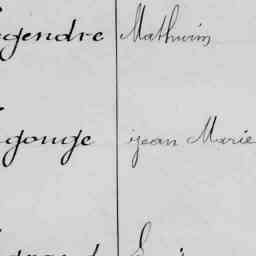 egendre Mathurin
gouge jean Marie